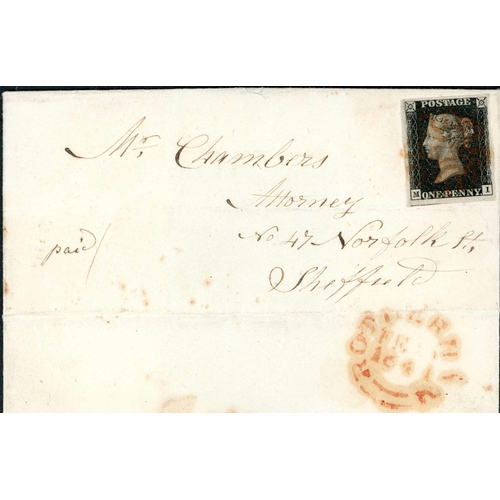 POSTAGE
M ONE PENNY I
Mr. Chambers
Attorney
No 47 Norfolk St,
Sheffield
paid/
ROTHERHAM
FE
1841